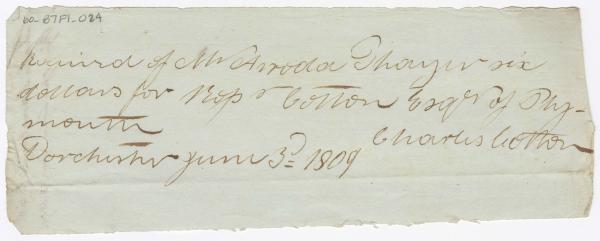 ba-B7F1-024
Received of Mr Arroda Thayer six
dollars for Ros r Cotton Esqr of Ply-
mouth
Charles Cotton
Dorchester June 3d 1809